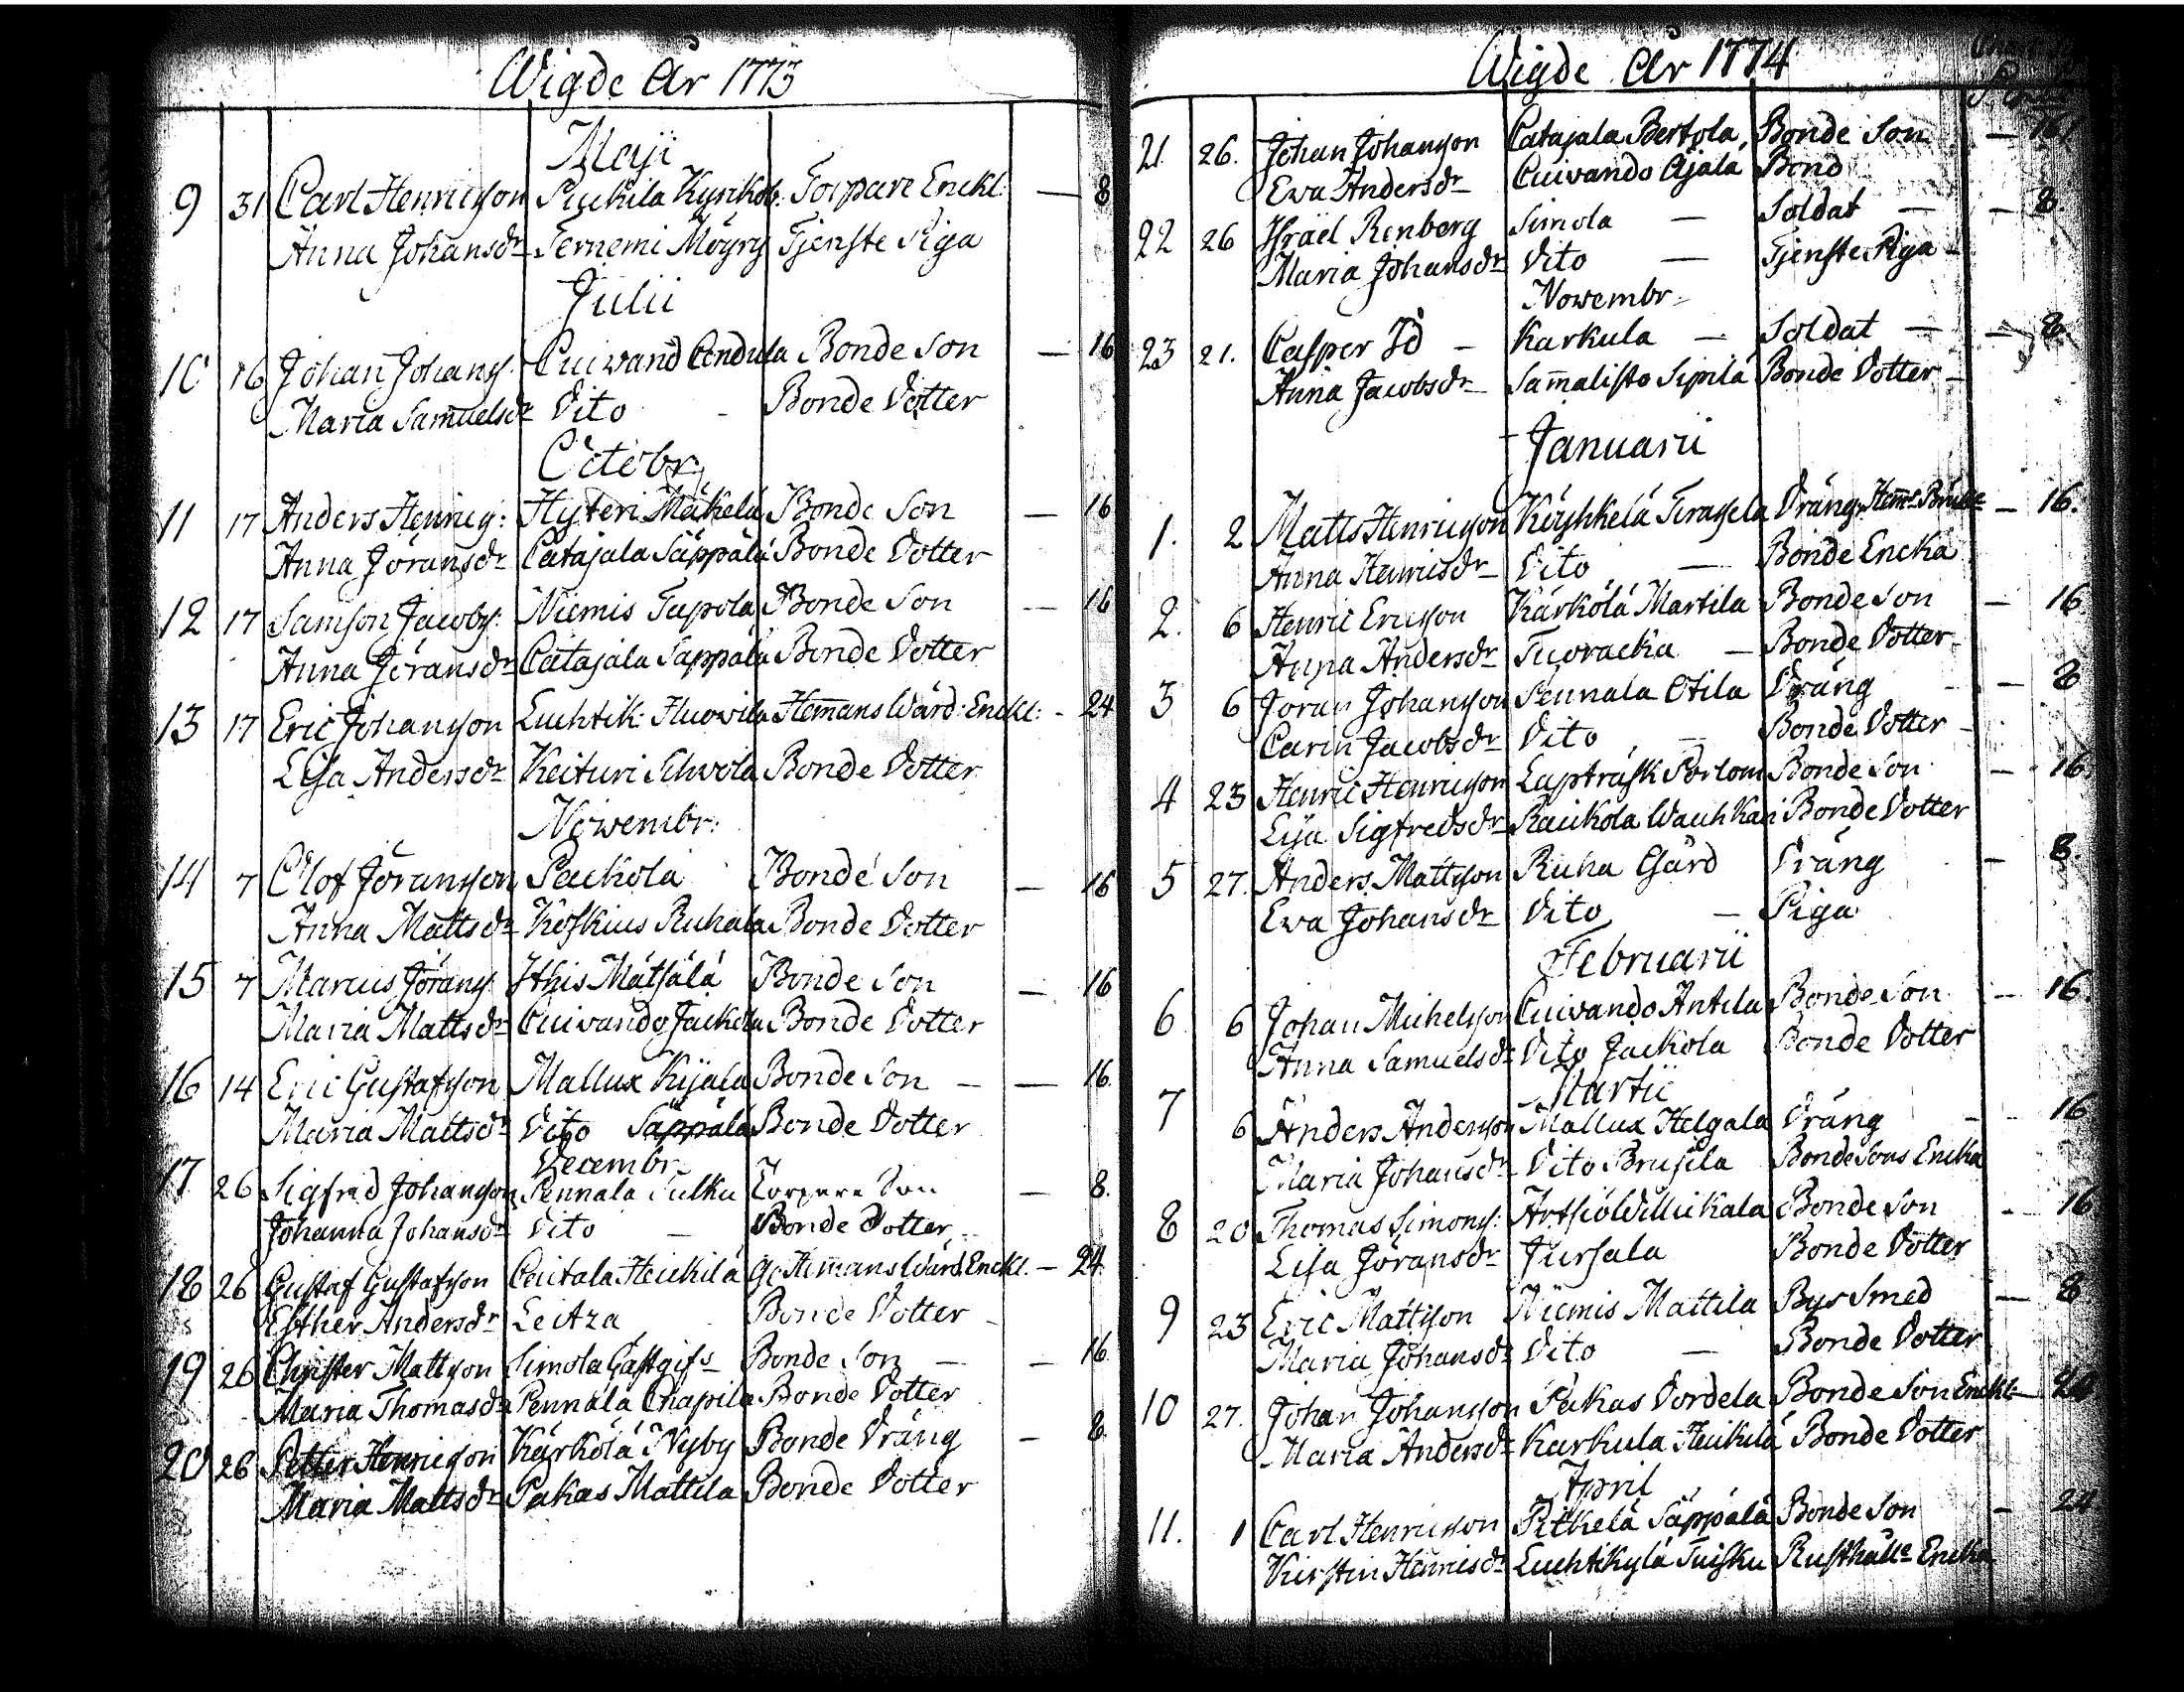 Wigde År 1773
Maji
9 31 Carl Henricsson Puckila Kyrikob. Torpare Enckl: — 8
Anna Johansdr Ternemi Möyry Tjenste Piga
Julii
10 16 Johan Johanss. Cuivand Andula Bonde Son — 16
Maria Samuelsdr Dito - Bonde Dotter
Octobr:
11 17 Anders Henrics: Hyteri Mäkelä Bonde Son — 16
Anna Jöransdr Catajala Säppälä Bonde Dotter
12 17 Samson Jacobs: Niemis Tapola Bonde Son — 16
Anna Jöransdr Catajala Säppälä Bonde Dotter
13 17 Eric Johansson Luchtik: Huovila Hemans Wärd: Enckl: - 24
Lisa Andersdr Keituri Schvola Bonde Dotter
Nowembr:
14 7 Olof Jöransson Packola Bonde Son — 16
Anna Mattsdr Koskius Ruhala Bonde Dotter
15 7 Marcus Jörans Ithis Mätsälä Bonde Son — 16
Maria Mattsdr Cuivando Jackola Bonde Dotter
16 14 Eric Gustafsson Mallux Kijala Bonde Son — — 16
Maria Mattsdr Dito Säppälä Bonde Dotter
Decembr
17 26 Sigfred Johansson Pennala Sulku Torpare Son — 8.
Johanna Johansdr Dito — Bonde Dotter
18 26 Gustaf Gustafsson Cautala Heickilä Hemans Wärd Enckl. — 24
Esther Andersdr Leitza Bonde Dotter
19 26 Christer Mattsson Simola Gästgifs Bonde Son — — 16
Maria Thomasdr Pennala Chapila Bonde Dotter
20 26 Petter Henricson Kärkölä Nyby Bonde Dräng — 8.
Maria Mattsdr Pakas Mattila Bonde Dotter
Wigde År 1774
21 26. Johan Johansson Catajala Bertola, Bonde Son — 16
Ewa Andersdr Cuivando Ajala Bond
22 26 Israël Renberg Simola — Soldat — — 8.
Maria Johansdr Dito — Tjenste Piga -
Nowembr
23 21. Casper Id - Karkula — Soldat — — 8
Anna Jacobsdr Samalisto Sipilä Bonde Dotter
Januarii
1. 2 Matts Henricsson Köyhkelä Terasela Dräng — 16.
Anna Henricsdr Dito — Bonde Encka
2. 6 Henric Ericsson Kärkölä Martila Bonde Son — 16
Anna Andersdr Tuoracka — Bonde Dotter
3 6 Joran Johansson Pennala Otila Dräng — 8
Carin Jacobsdr Dito — Bonde Dotter
4 23 Henric Henricsson Lapträsk Porlom Bonde Son — 16
Lisa Sigfredsdr Raickola Wauhkai Bonde Dotter
5 27. Anders Mattsson Ruha Gård Dräng — 8.
Ewa Johansdr Dito — Piga
Februarii
6 6 Johan Michelsson Cuivando Antila Bonde Son — 16.
Anna Samuelsdr Dito Jackola Bonde Dotter
Martii
7 6 Anders Andersson Mallux Helgala Dräng — 16
Maria Johansdr Dito Brusila Bonde Sons Encka
8 20 Thomas Simons: Artsiö Willickala Bonde Son - 16
Lisa Jöransdr Jursala Bonde Dotter
9 23 Eric Mattsson Niemis Mattila Bys Smed — 8
Maria Johansdr Dito — Bonde Dotter
10 27. Johan Johansson Pakas Dordela Bonde Son Enckl — 24
Maria Andersdr Karkula Heickilä Bonde Dotter
April
11. 1 Carl Henricsson Pitkelä Säppälä Bonde Son — 24
Kirstin Henricsdr Luchtikylä Tuisku Rusthålls Encka